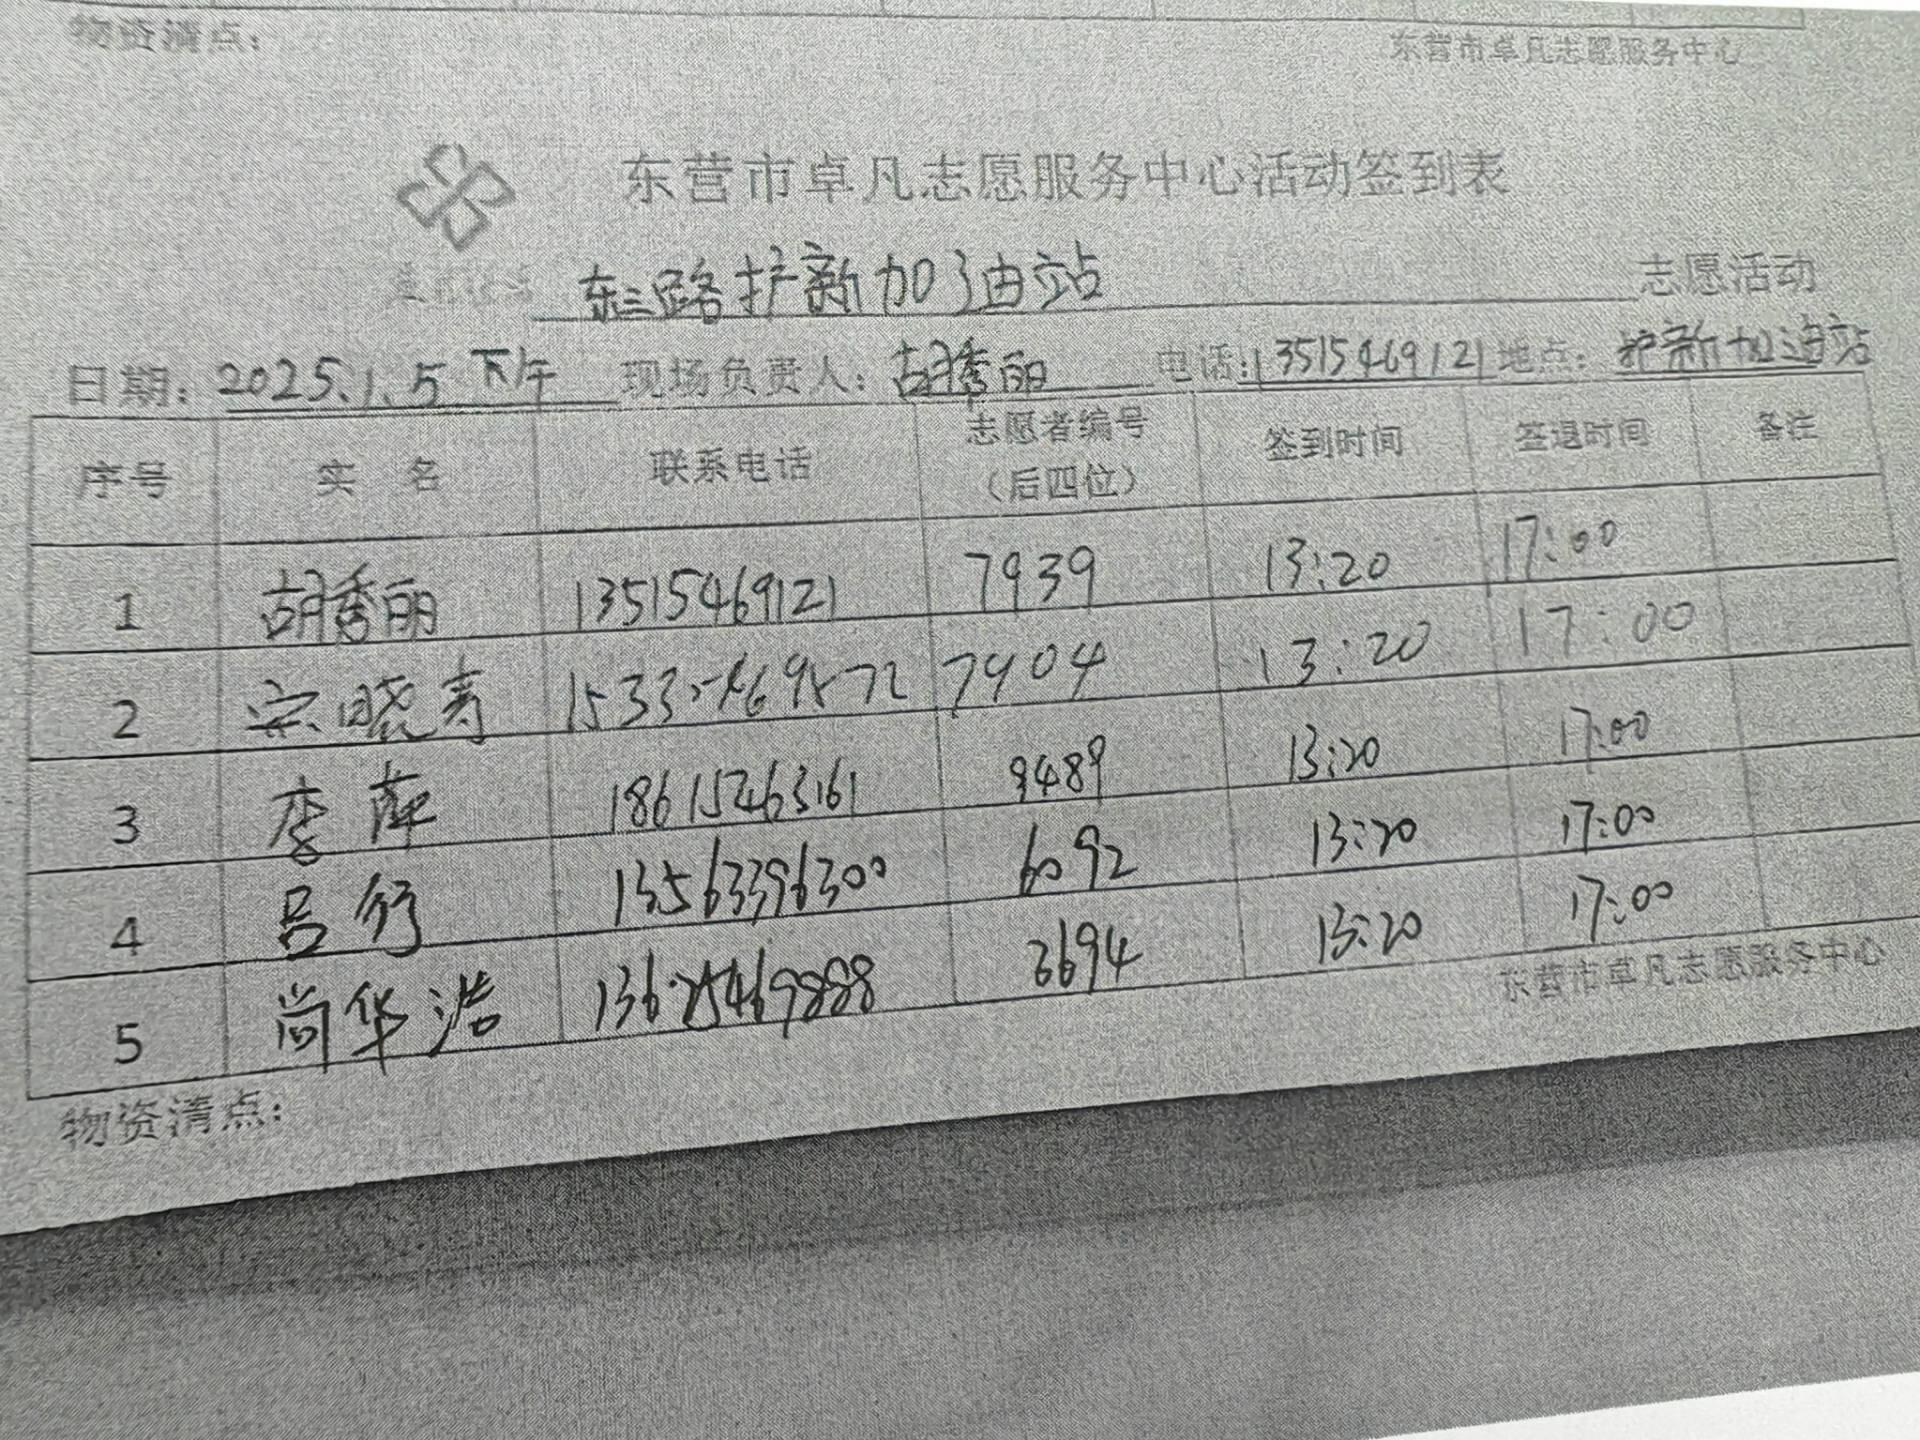 物资清点：
东营市卓凡志愿服务中心
东营市卓凡志愿服务中心活动签到表
东三路护新加油站 志愿活动
日期：2025.1.5 下午 现场负责人：胡秀丽 电话：13515469121 地点：护新加油站
序号 实 名 联系电话 志愿者编号（后四位） 签到时间 签退时间 备注
1 胡秀丽 13515469121 7939 13:20 17:00
2 宋晓寿 7904 13:20 17:00
3 李萍 18615463161 9489 13:20 17:00
4 吕行 13563396300 6092 13:20 17:00
5 尚华浩 13625469888 3694 13:20 17:00
东营市卓凡志愿服务中心
物资清点：